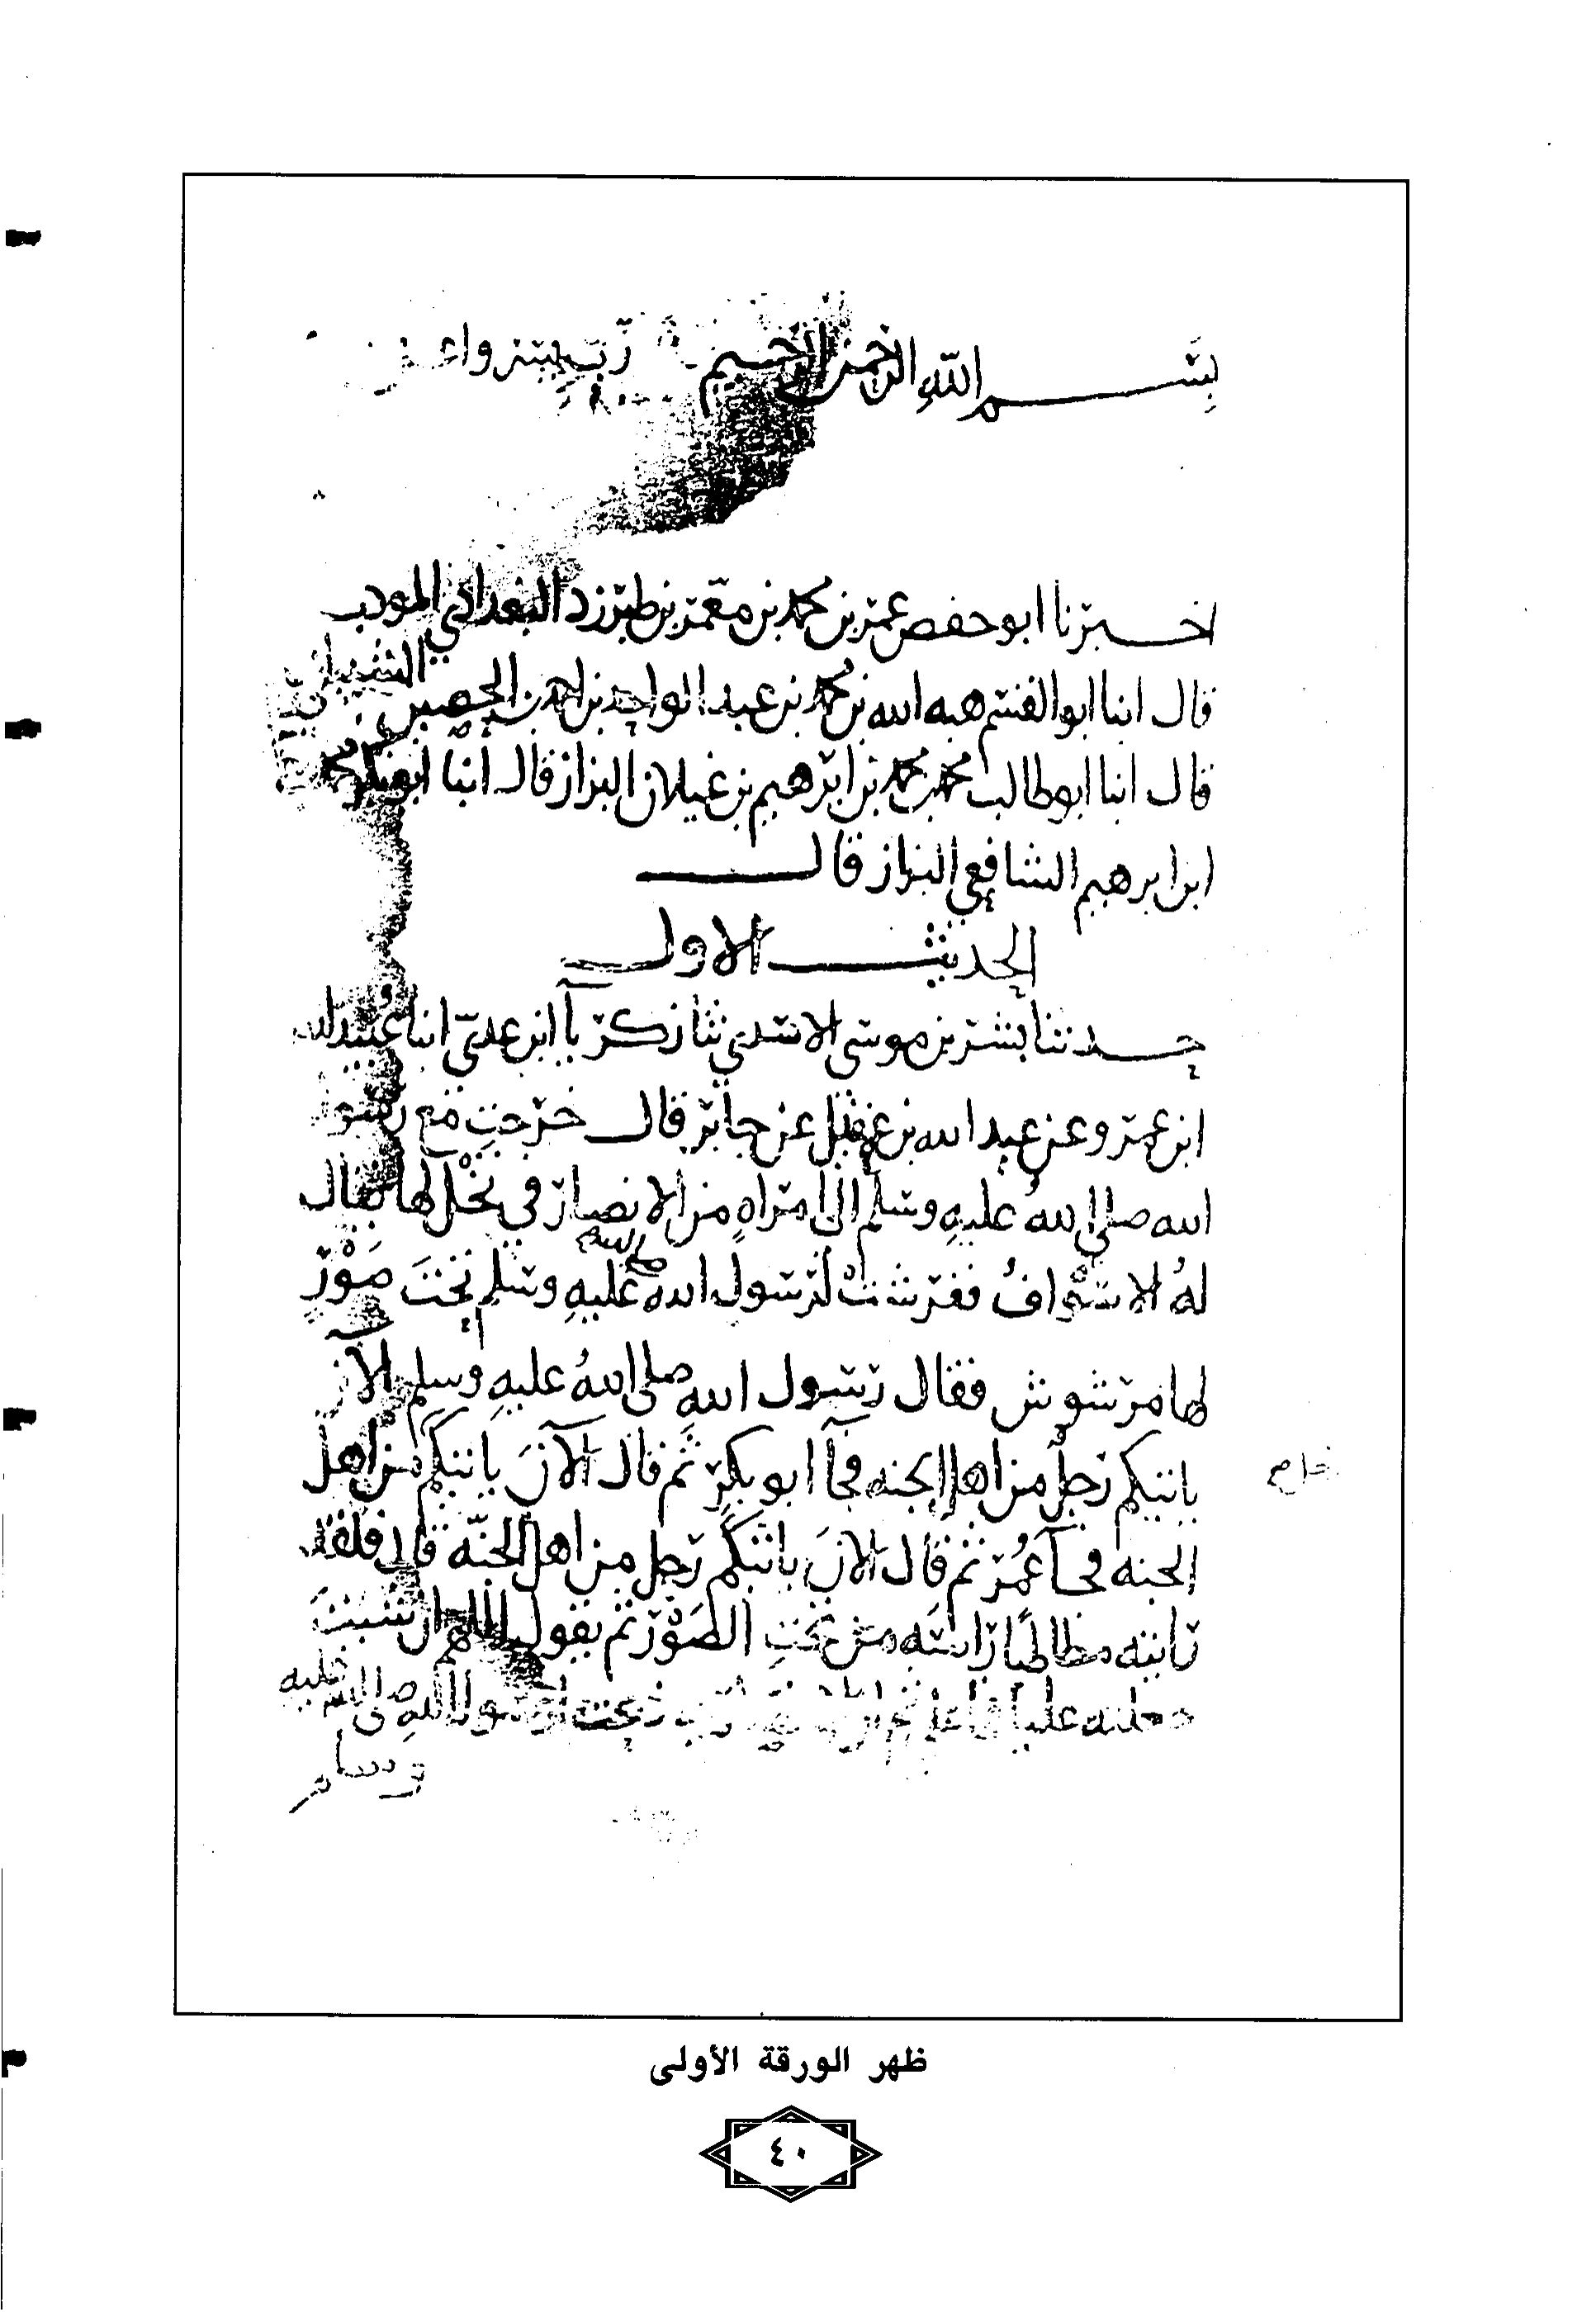 بسم الله الرحمن الرحيم رب يسر واعن
اخبرنا ابو حفص عمر بن محمد بن معمر بن طبرزد البغدادي المودب
قال انبا ابو القسم هبه الله بن محمد بن عبد الواحد بن احمد بن الحصين الشيباني
قال انبا ابو طالب محمد بن محمد بن ابرهيم بن غيلان البزاز قال انبا ابو بكر محمد
ابن ابرهيم الشافعي البزاز قال
الحديث الاول
حدثنا بشر بن موسى الاسدي ثنا زكريآ ابن عدي انبا عبيد الله
ابن عمرو عن عبد الله بن عقيل عن جابر قال خرجت مع رسول
الله صلى الله عليه وسلم الى امراه من الانصار في نخل لها يقال
له الاسواف ففرشت لرسول الله صلى الله عليه وسلم تحت صور
لها مرشوش فقال رسول الله صلى الله عليه وسلم الآن
ياتيكم رجل من اهل الجنه فجآ ابو بكر ثم قال الآن ياتيكم من اهل
الجنه فجآ عمر ثم قال الان ياتيكم رجل من اهل الجنه قال فلقد
رايته مطاطيا راسه من تحت الصور ثم يقول اللهم ان شيت
جعلته عليا فجا علي ثم ان ذبحت لرسول الله صلى الله عليه
وسلم
ظهر الورقة الأولى
٤٠